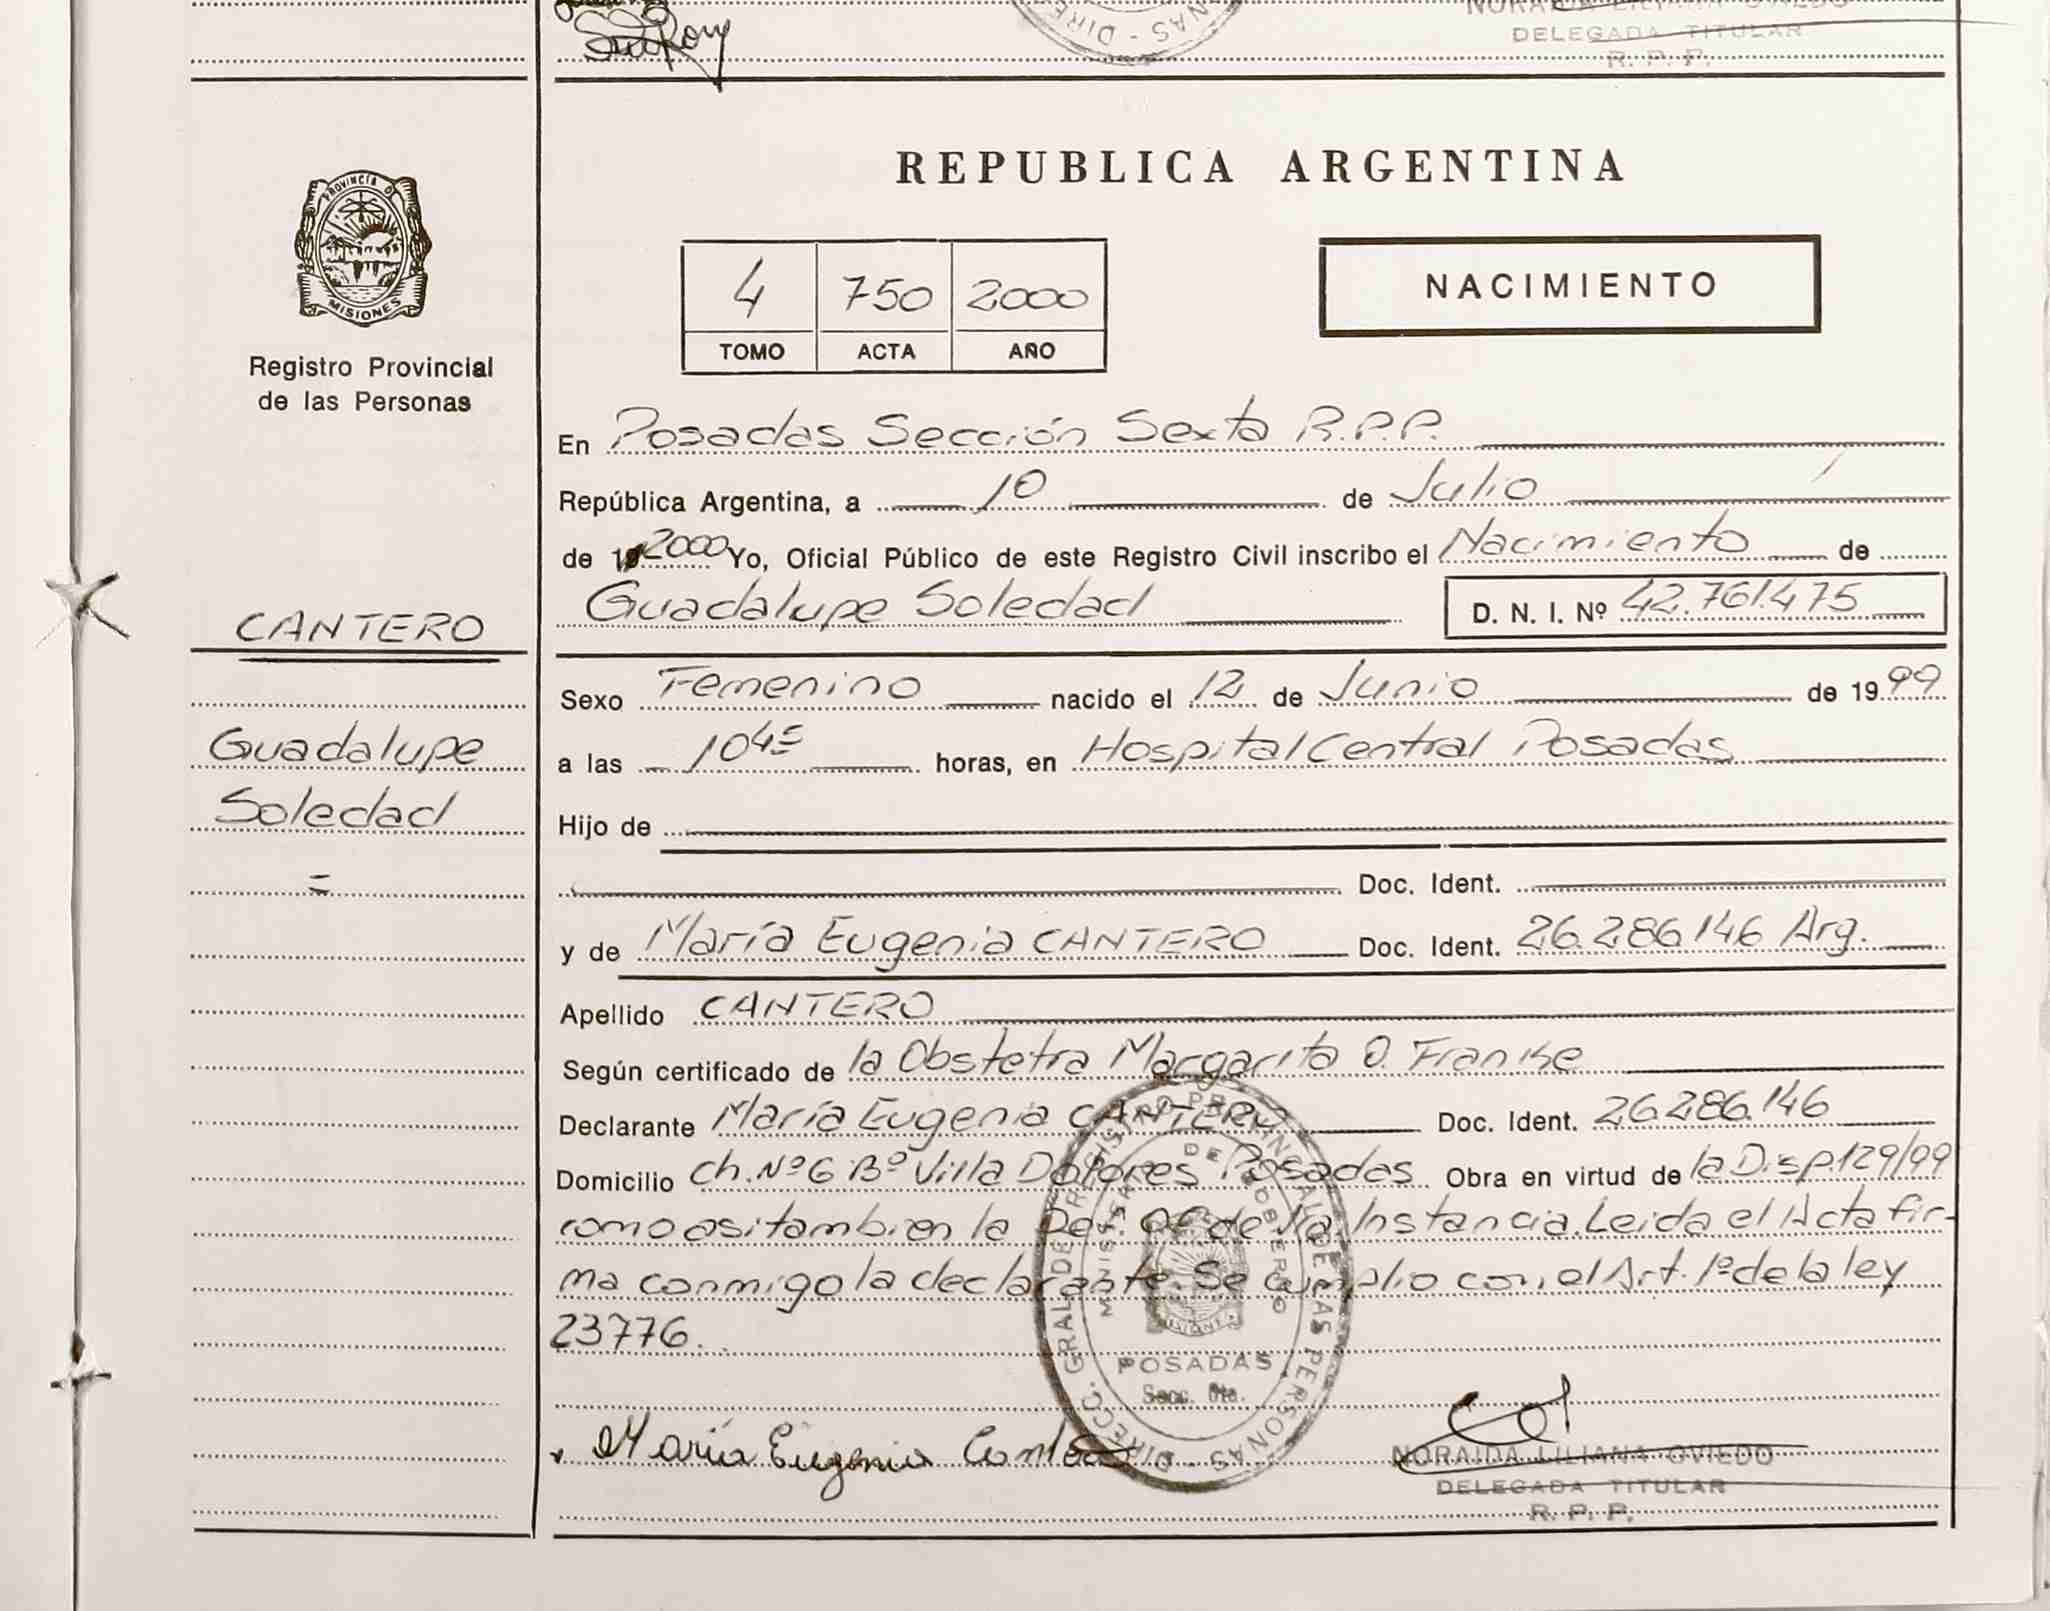 DELEGADA TITULAR
R. P. P.
REPUBLICA ARGENTINA
PROVINCIA D
MISIONES
Registro Provincial
de las Personas
4 750 2000
TOMO ACTA AÑO
NACIMIENTO
En Posadas Sección Sexta R.P.P.
República Argentina, a 10 de Julio
de 19 2000 Yo, Oficial Público de este Registro Civil inscribo el Nacimiento de
Guadalupe Soledad D. N. I. Nº 42.761.475
CANTERO
Guadalupe
Soledad
=
Sexo Femenino nacido el 12 de Junio de 1999
a las 10 45 horas, en Hospital Central Posadas
Hijo de
Doc. Ident.
y de María Eugenia CANTERO Doc. Ident. 26.286.146 Arg.
Apellido CANTERO
Según certificado de la Obstetra Margarita O. Franke
Declarante María Eugenia CANTERO Doc. Ident. 26.286.146
Domicilio Ch. Nº 6 Bº Villa Dolores Posadas Obra en virtud de la Disp. 129/99
como asi tambien la de la Instancia. Leida el Acta fir-
ma conmigo la declarante. Se cumplio con el Art. 1º de la ley
23776.
DIRECC. GRAL. DE REGISTRO PROVINCIAL DE LAS PERSONAS
MINISTERIO DE GOBIERNO
MISIONES
POSADAS
Secc. 6ta.
María Eugenia Cantero
NORAIDA LILIANA OVIEDO
DELEGADA TITULAR
R. P. P.